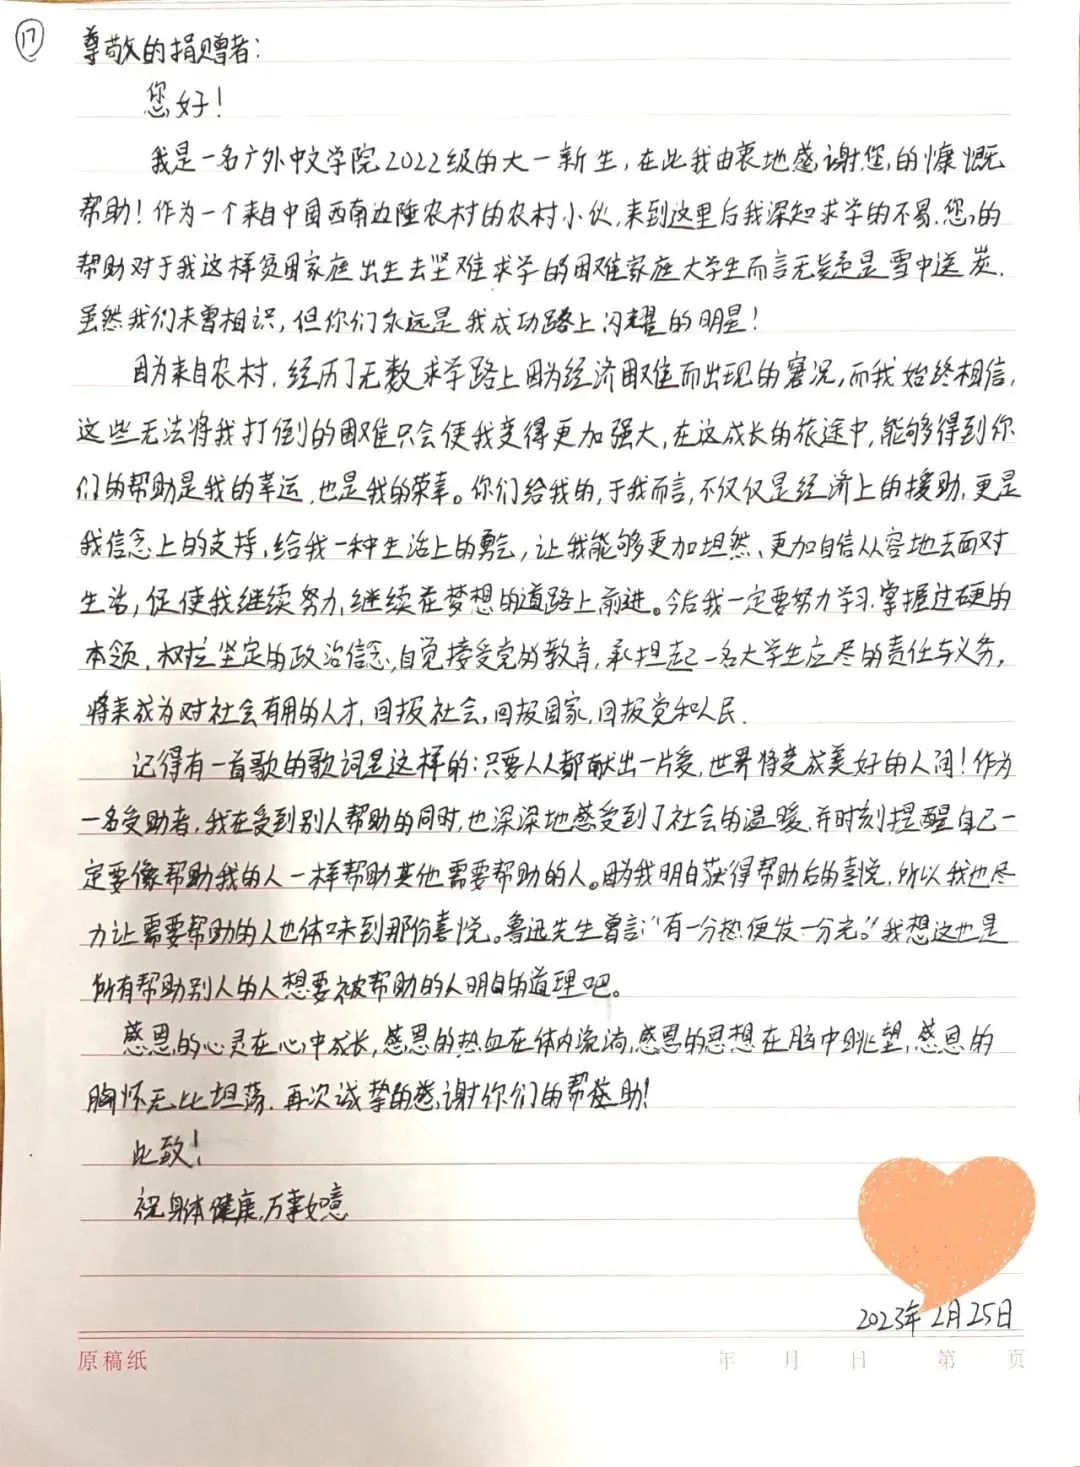 17
尊敬的捐赠者：
您好！
我是一名广外中文学院2022级的大一新生，在此我由衷地感谢您的慷慨
帮助！作为一个来自中国西南边陲农村的农村小伙，来到这里后我深知求学的不易，您的
帮助对于我这样贫困家庭出生去坚难求学的困难家庭大学生而言无疑是雪中送炭，
虽然我们未曾相识，但你们永远是我成功路上闪耀的明星！
因为来自农村，经历了无数求学路上因为经济困难而出现的窘况，而我始终相信，
这些无法将我打倒的困难只会使我变得更加强大，在这成长的旅途中，能够得到你
们的帮助是我的幸运，也是我的荣幸。你们给我的，于我而言，不仅仅是经济上的援助，更是
我信念上的支持，给我一种生活上的勇气，让我能够更加坦然、更加自信从容地去面对
生活，促使我继续努力，继续在梦想的道路上前进。今后我一定要努力学习，掌握过硬的
本领，树立坚定的政治信念，自觉接受党的教育，承担起一名大学生应尽的责任与义务，
将来成为对社会有用的人才，回报社会，回报国家，回报党和人民．
记得有一首歌的歌词是这样的：只要人人都献出一片爱，世界将变成美好的人间！作为
一名受助者，我在受到别人帮助的同时，也深深地感受到了社会的温暖，并时刻提醒自己一
定要像帮助我的人一样帮助其他需要帮助的人。因为我明白获得帮助后的喜悦，所以我也尽
力让需要帮助的人也体味到那份喜悦。鲁迅先生曾言：“有一分热便发一分光。”我想这也是
所有帮助别人的人想要被帮助的人明白的道理吧。
感恩的心灵在心中成长，感恩的热血在体内流淌，感恩的思想在脑中眺望，感恩的
胸怀无比坦荡．再次诚挚的感谢你们的帮助！
此致！
祝身体健康，万事如意
2023年2月25日
原稿纸 年 月 日 第 页